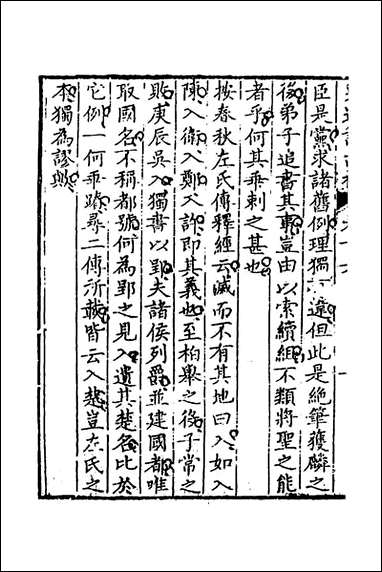 臣是黨求諸舊例理獨有違但此是絶筆獲麟之
後弟子追書其事豈由以索續組不類將聖之能
者乎何其乖剌之甚也
按春秋左氏傳釋經云滅而不有其地曰入如入
陳入衛入鄭入許即其義也至柏舉之役子常之
敗庚辰吳入獨書以郢夫諸侯列爵並建國都唯
取國名不稱都號何為郢之見入遺其楚名比於
它例一何乖踳尋二傳所載皆云入楚豈左氏之
本獨為謬歟